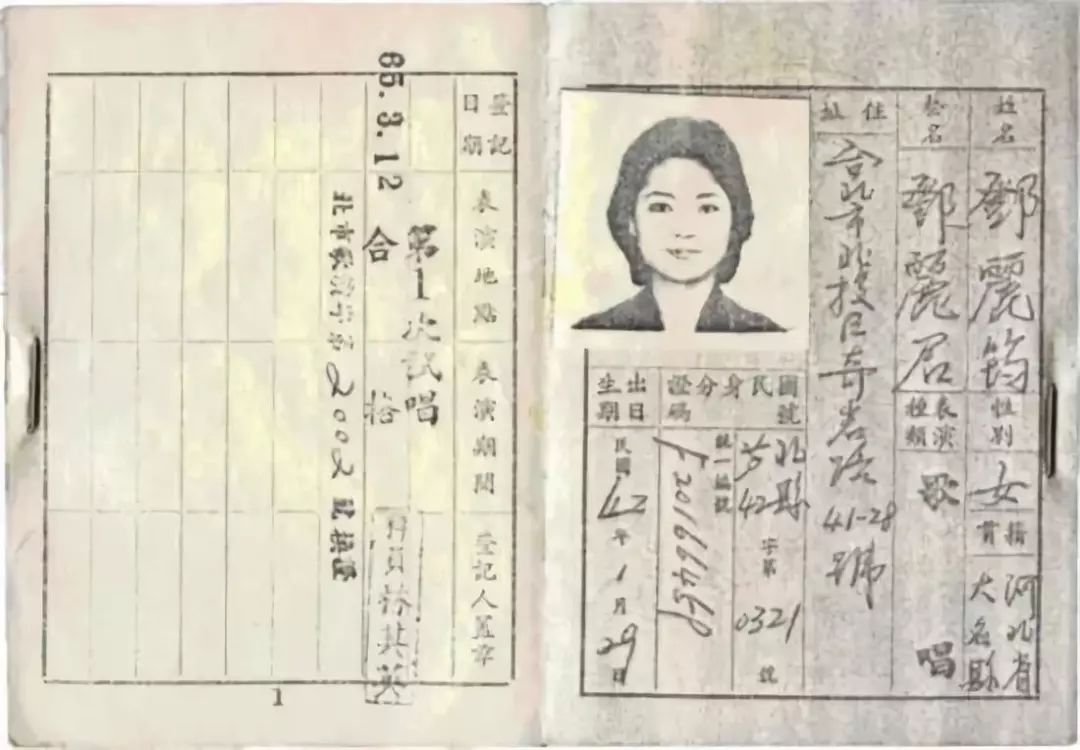 姓名 鄧麗筠 性別 女 籍貫 河北省大名縣
藝名 鄧麗君 表演種類 歌唱
住址 台北市北投區奇岩路41-28號
國民身分證號碼
北縣 42 字第 0321 號
統一編號
出生日期 民國 42 年 1 月 29 日
登記日期 表演地點 表演期間 登記人蓋章
第1次試唱
65.3.12 合格
1